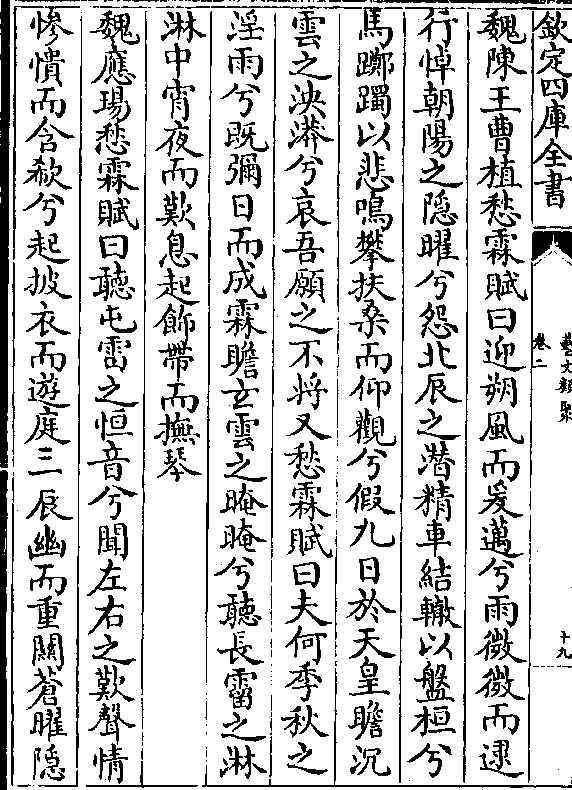 欽定四庫全書
藝文類聚
卷二
十九
魏陳王曹植愁霖賦曰迎朔風而爰邁兮雨微微而逮
行悼朝陽之隱曜兮怨北辰之潛精車結轍以盤桓兮
馬躑躅以悲鳴攀扶桑而仰觀兮假九日於天皇瞻沉
雲之泱漭兮哀吾願之不將又愁霖賦曰夫何季秋之
淫雨兮既彌日而成霖瞻玄雲之晻晻兮聽長霤之淋
淋中宵夜而歎息起飾帶而撫琴
魏應瑒愁霖賦曰聽屯雷之恒音兮聞左右之歎聲情
慘憒而含欷兮起披衣而遊庭三辰幽而重關蒼曜隱